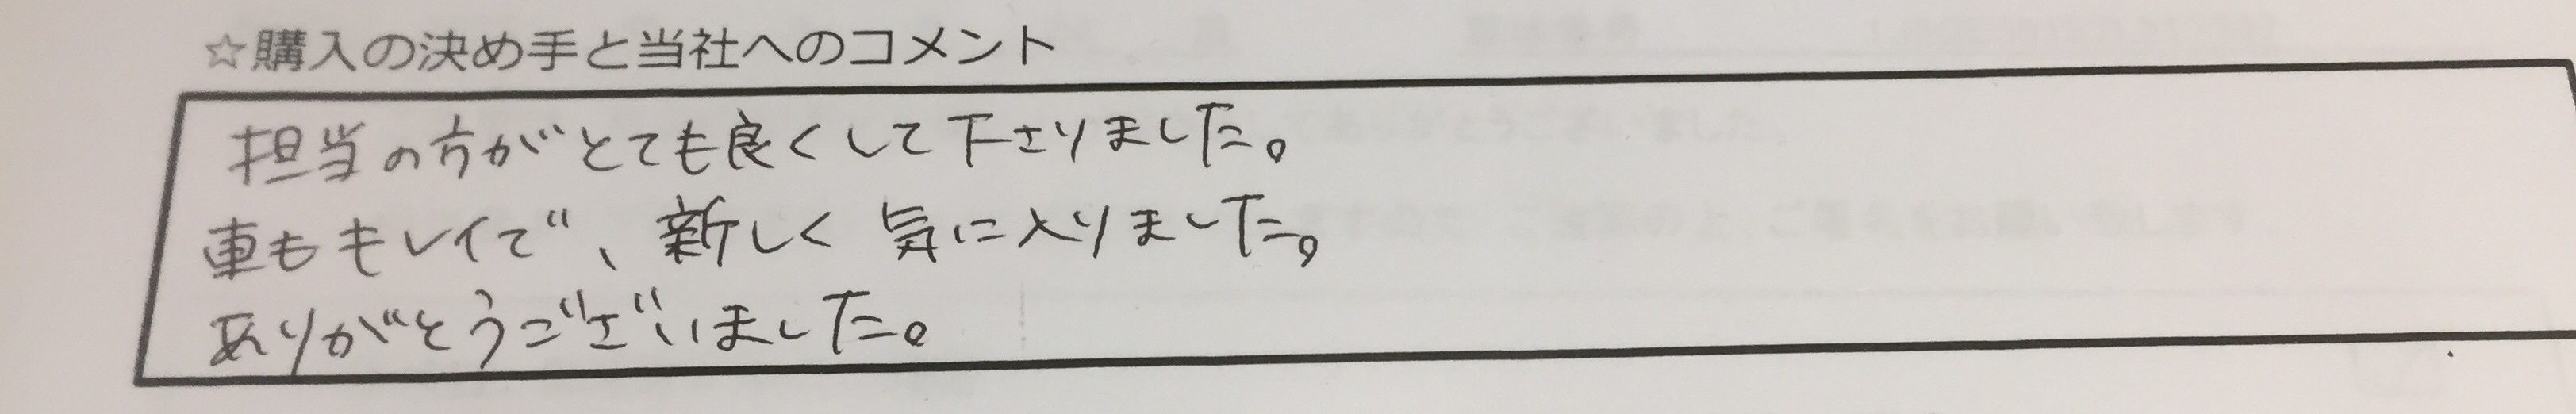 ☆購入の決め手と当社へのコメント
担当の方がとても良くして下さりました。
車もキレイで、新しく気に入りました。
ありがとうございました。